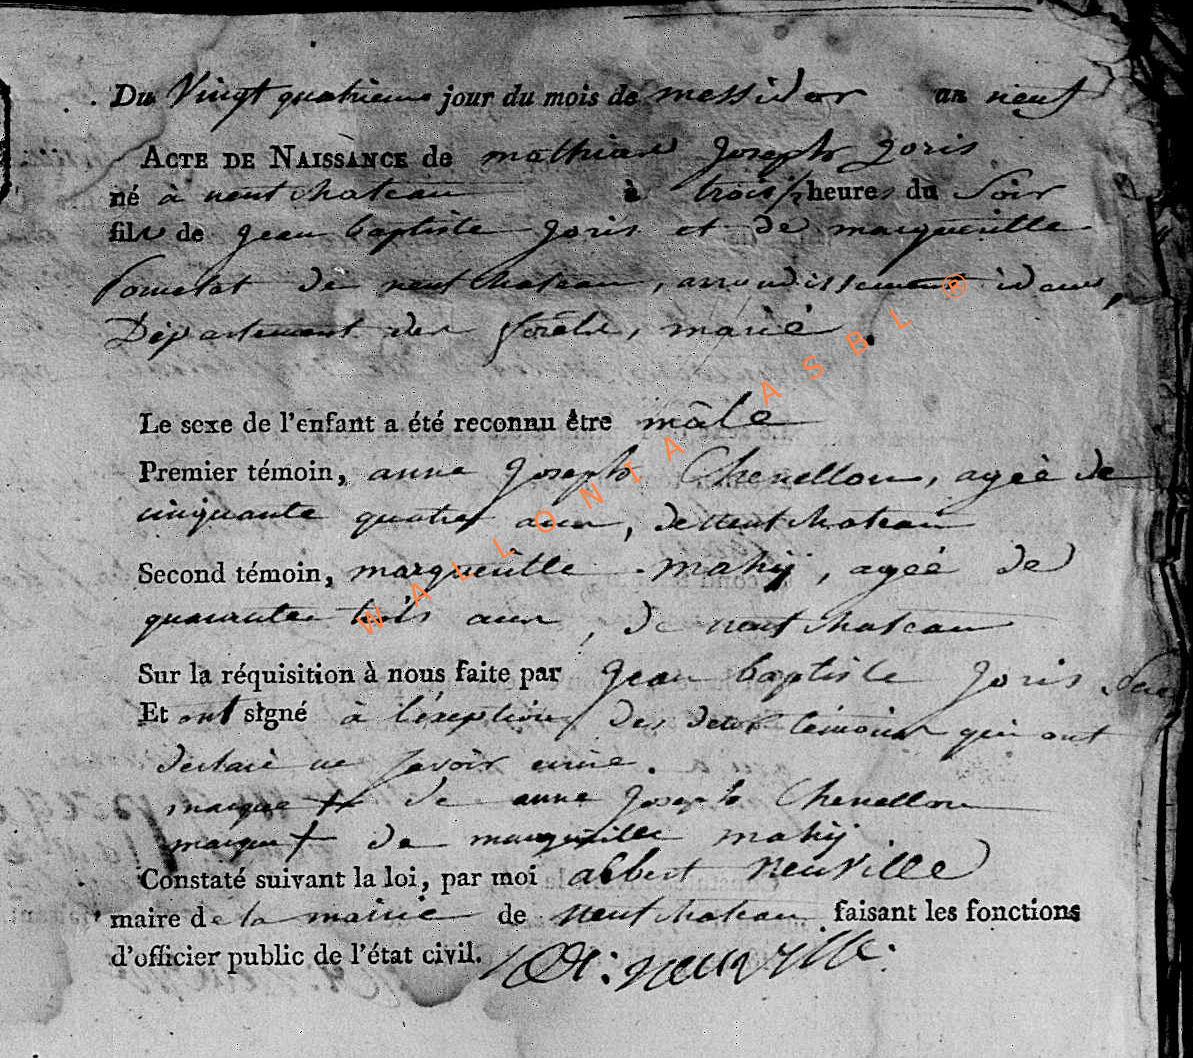 Du Vingt quatrieme jour du mois de messidor an neuf
ACTE DE NAISSANCE de mathieu Joseph Joris
né à neufchateau à trois heures du Soir
fils de Jean baptiste Joris et de margueritte
de neufchateau, arrondissement idem,
Département des forêts, marié.
Le sexe de l'enfant a été reconnu être mâle
Premier témoin, anne Joseph Chenellon, agée de
cinquante quatre ans, de neufchateau
Second témoin, margueritte mahij, agée de
quarante trois ans, de neufchateau
Sur la réquisition à nous faite par Jean baptiste Joris
Et ont signé à l'exeption des deux témoins qui ont
declaré ne savoir ecrire.
marque de anne Joseph Chenellon
marque de margueritte mahij
Constaté suivant la loi, par moi albert Neuville
maire de la mairie de neufchateau faisant les fonctions
d'officier public de l'état civil. A: neuville
WALLONIA ASBL ®